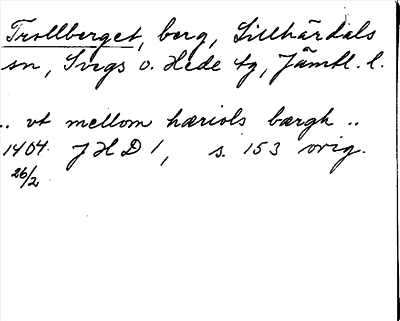 Trollberget, berg, Lillhärdals
sn, Svegs o. Hede tg, Jämtl. l.
.. vt mellom hæriols bærgh ..
1404. JHD 1, s. 153 orig.
26/2